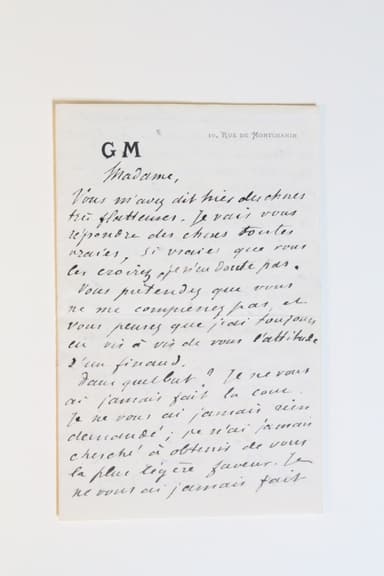 10, RUE DE MONTCHANIN
GM
Madame,
Vous m'avez dit hier des choses
très flatteuses. Je vais vous
répondre des choses toutes
vraies, si vraies que vous
les croirez, je n'en doute pas.
Vous prétendez que vous
ne me comprenez pas, et
vous pensez que j'ai toujours
eu vis à vis de vous l'attitude
d'un finaud.
Dans quel but ? Je ne vous
ai jamais fait la cour.
Je ne vous ai jamais rien
demandé ; je n'ai jamais
cherché à obtenir de vous
la plus légère faveur. Je
ne vous ai jamais fait